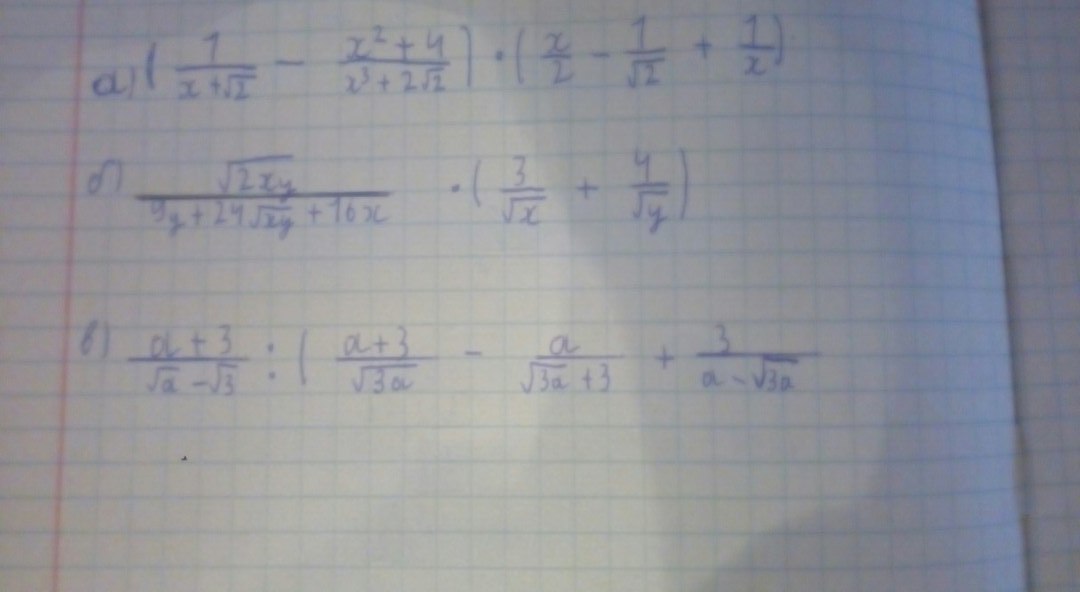 а) (1/(x+√2) − (x²+4)/(x³+2√2)) · (x/2 − 1/√2 + 1/x)
б) √(2xy)/(9y+24√(xy)+16x) · (3/√x + 4/√y)
в) (a+3)/(√a−√3) : ( (a+3)/√(3a) − a/(√(3a)+3) + 3/(a−√(3a))